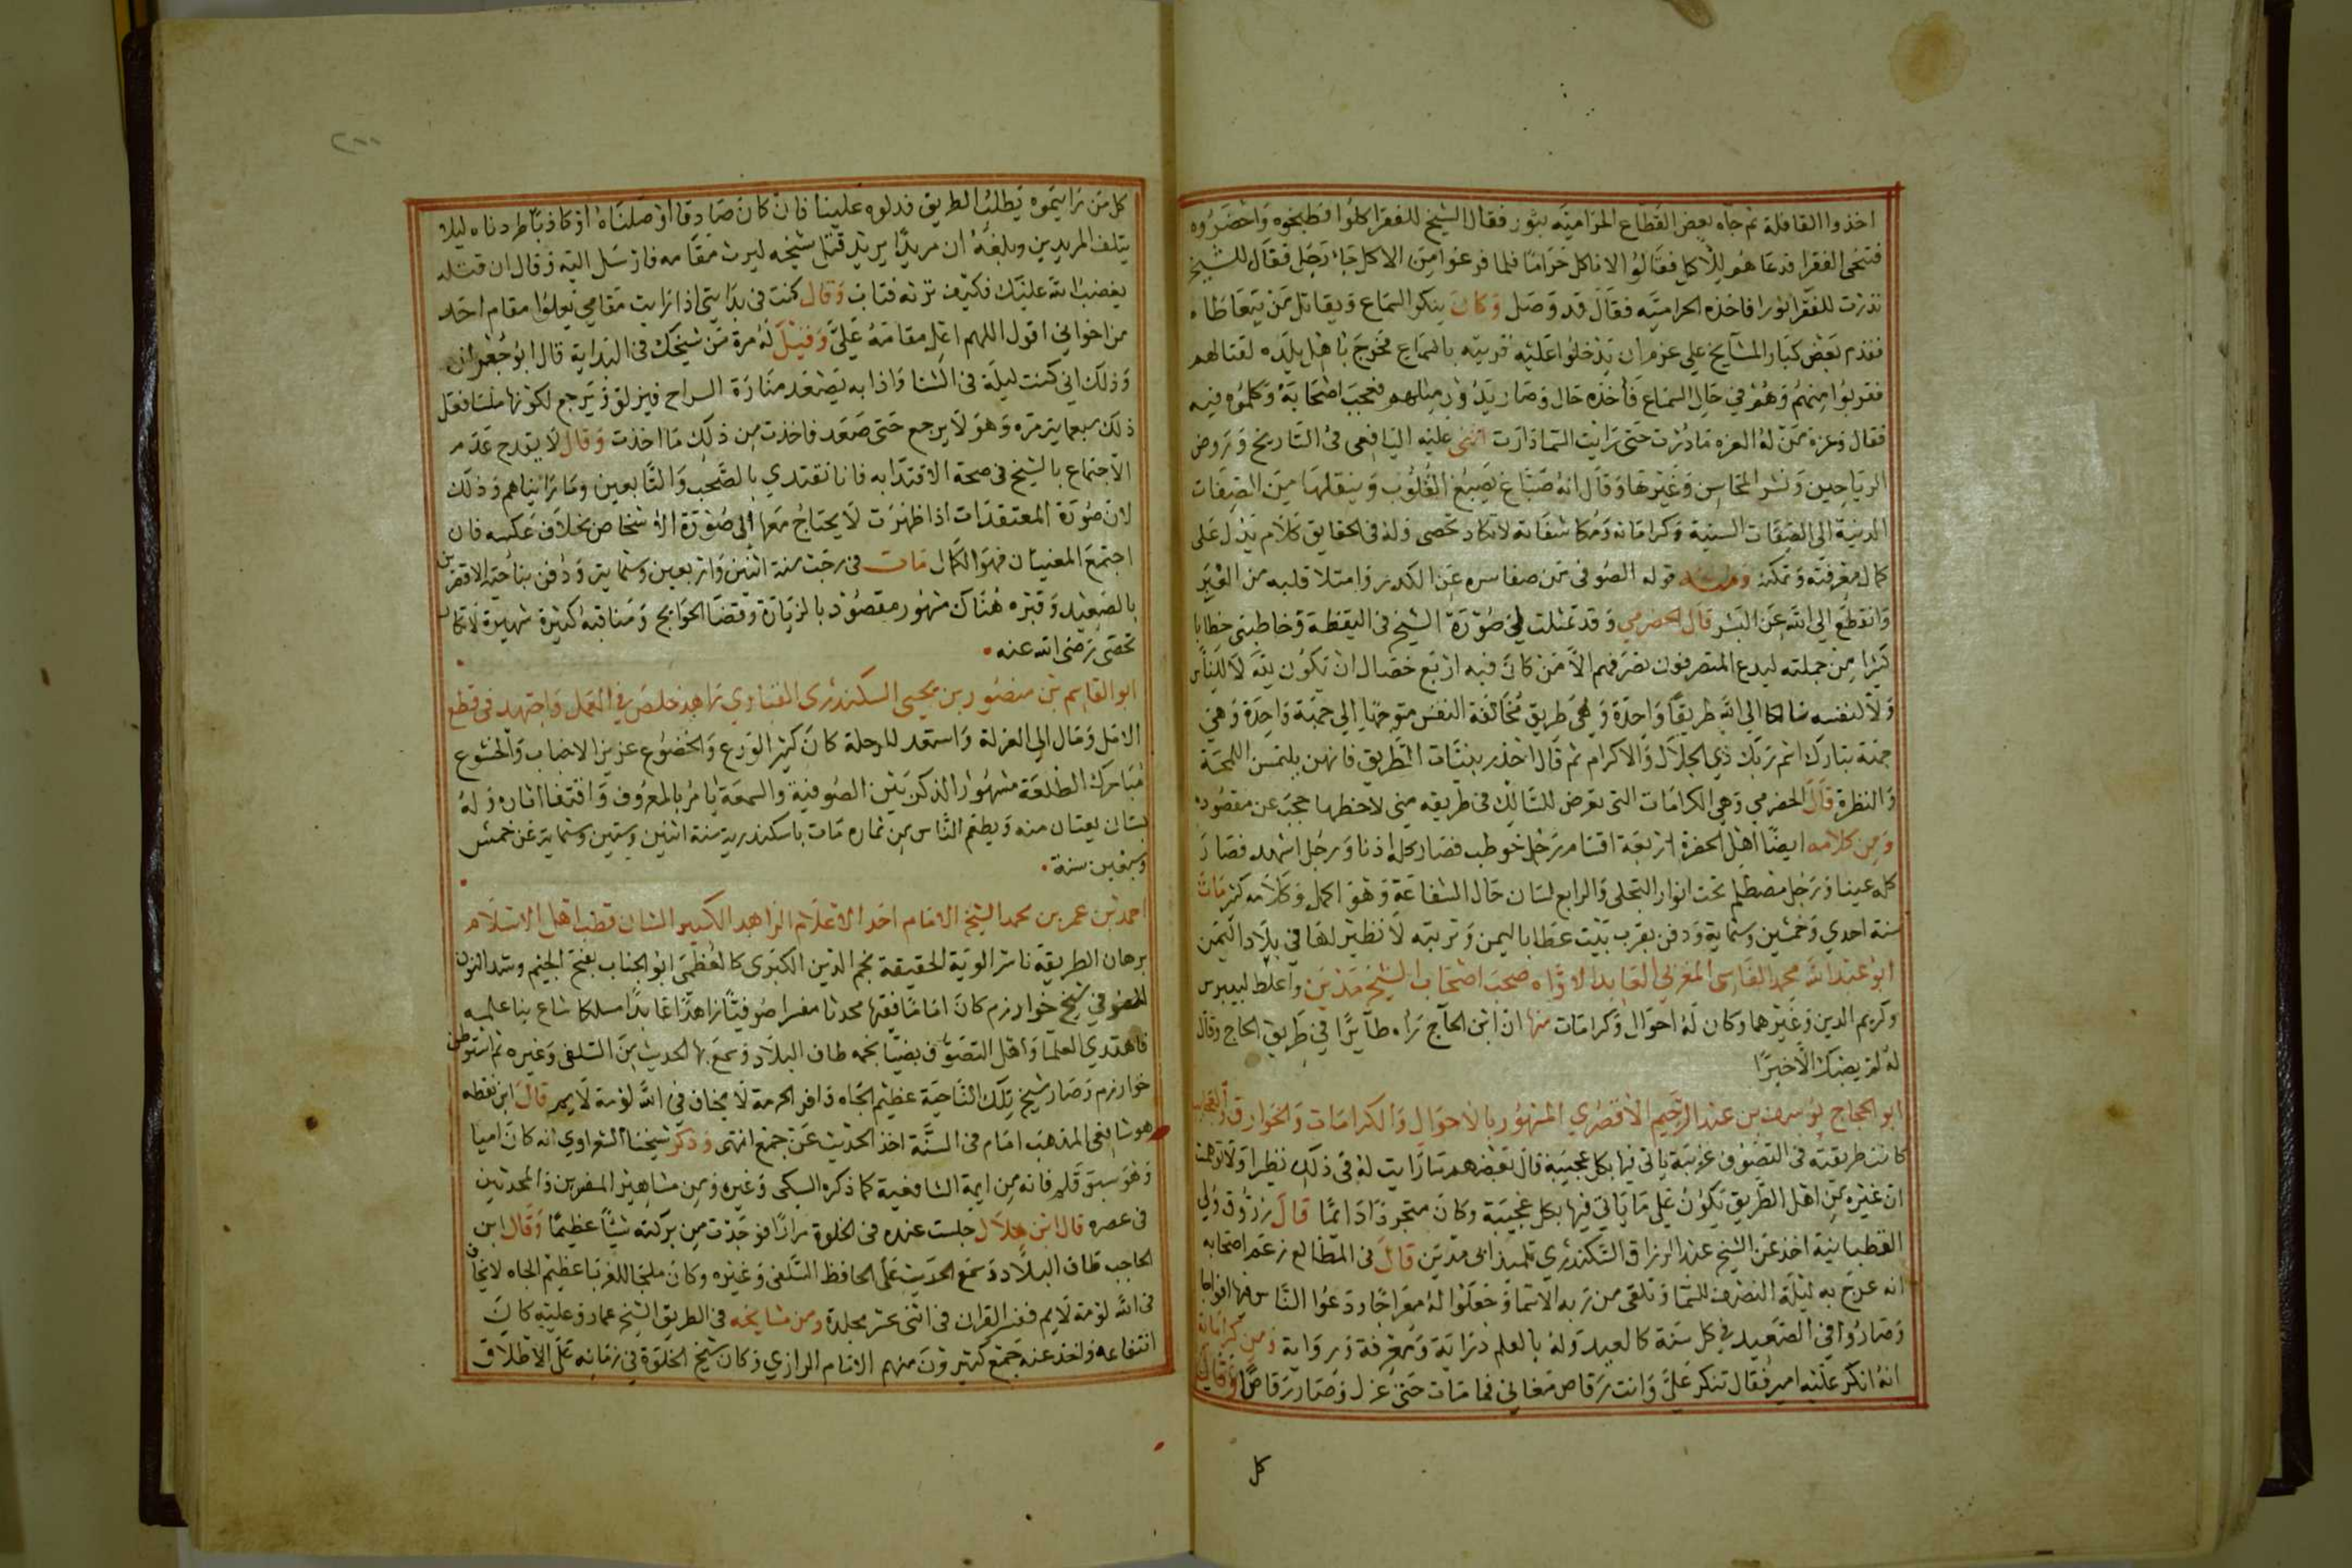 اخذوا القافلة ثم جاه بعض القطاع الحراميّه بثور فقال الشيخ للفقرا كلوا فطبخوه واحضروه
فتنحى الفقرا فدعاهم للاكل فقالوا لاناكل حراما فلما فرغوا من الاكل جا رجل فقال للشيخ
نذرت للفقرا ثورا فاخذه الحراميّه فقال قد وصل وكان ينكر السماع ويقاتل من يتعاطاه
فقدم بعض كبار المشايخ على عزم ان يدخلوا عليه قريته بالسماع فخرج باهل بلده لقتالهم
فقربوا منهم وهم في حال السماع فأخذه حال وصار يدور مثلهم فعجب اصحابه وكلموه فيه
فقال وعزة من له العزه ما درت حتى رايت السما دارت اثنى عليه اليافعي في التاريخ وروض
الرياحين ونشر المحاسن وغيرها وقال انه صباغ يصبغ القلوب وينقلها من الصفات
الدنية الى الصفات السنية وكراماته ومكاشفاته لاتكاد تحصى وله في الحقايق كلام يدل على
كمال معرفته وتمكنه قوله الصوفي من صفا سره عن الكدر وامتلا قلبه من العبر
وانقطع الى الله عن البشر قال الحضرمي وقد تمثلت لي صورة الشيخ في اليقظة وخاطبني خطابا
كثيرا من جملته ليدع المتصرفون تصرفهم الا من كان فيه اربع خصال ان يكون لله لا للناس
ولا لنفسه سالكا الى الله طريقا واحدة وهي طريق مخالفة النفس متوجها الى جهة واحدة وهي
جهة تبارك اسم ربك ذي الجلال والاكرام ثم قال احذر بنيات الطريق فانهن يلتمسن اللمحة
والنظرة قال الحضرمي وهي الكرامات التي تعرض للسالك في طريقه متى لاحظها حجب عن مقصوده
ومن كلامه ايضا اهل الحضرة اربعة اقسام رجل خوطب فصار كله اذنا ورجل اشهد فصار
كله عينا ورجل مصطلم تحت انوار التجلي والرابع لسان حال الشفاعة وهو اكمل وكلامه كثير مات
سنة احدي وخمسين وستماية ودفن بقرب بيت عطا باليمن وتربته لا نظير لها في بلاد اليمن
ابو عبد الله محمد الفاسي المغربي العابد الاواه صحب اصحاب الشيخ مدين واغلظ لبيبرس
وكريم الدين وغيرهما وكان له احوال وكرامات منها ان ابن الحاج راه طايرا في طريق الحاج وقال
له لم يصبك الاخيرا
ابو الحجاج يوسف بن عبد الرحيم الاقصري المشهور بالاحوال والكرامات والخوارق
كانت طريقته في التصوف غريبة ياتي فيها بكل عجيبة قال بعضهم ما رايت له في ذلك نظيرا ولا توهمت
ان غيره من اهل الطريق يكون على ما ياتي فيها بكل عجيبة وكان متجردا دائما قال رزوق ولي
القطبانية اخذ عن الشيخ عبد الرزاق السكندري تلميذ ابي مدين قال في المطالع زعم اصحابه
انه عرج به ليلة النصف للسما وتلقى من ربه الاسما وجعلوا له معراجا ودعوا الناس فيها افواجا
وصاروا في الصعيد في كل سنة كالعيد وله بالعلم دراية ومعرفة ورواية ومن كراماته
انه انكر عليه امير فقال تنكر علي وانت رقاص مغاني فما مات حتى عزل وصار رقاصا وقال
كل
٢٠٠
كل من رايتموه يطلب الطريق فدلوه علينا فان كان صادقا اوصلناه او كاذبا طردناه ليلا
يتلف المريدين وبلغه ان مريدا يريد قتل شيخه ليرث مقامه فارسل اليه وقال ان قتلته
يغضب الله عليك فكيف ترثه فتاب وقال كنت في بدايتي اذا رايت مقامي يعلوا مقام احد
من اخواني اقول اللهم اعل مقامه علي وقيل له مرة من شيخك في البداية قال ابو جعران
وذلك اني كنت ليلة في الشتا واذا به يصعد منارة السراج فيزلق ويرجع لكونها ملسا فعل
ذلك سبعماية مره وهو لا يرجع حتى صعد فاخذت من ذلك ما اخذت وقال لا يقدح عدم
الاجتماع بالشيخ في صحة الاقتدا به فانا نقتدي بالصحب والتابعين وما رايناهم وذلك
لان صورة المعتقدات اذا ظهرت لا يحتاج معها الى صورة الاشخاص بخلاف عكسه فان
اجتمع المعنيان فهو الكمال مات في رجب سنة اثنين واربعين وستماية ودفن بناحية الاقصرين
بالصعيد وقبره هناك مشهور مقصود بالزيارة وقضا الحوايج ومناقبه كثيرة شهيرة لاتكاد
تحصى رضي الله عنه
ابو القاسم بن منصور بن يحيى السكندري القباري زاهد خلص في العمل واجتهد في قطع
الامل ومال الى العزلة واستعد للرحلة كان كثير الورع والخضوع عزيز الانجاب والخشوع
مبارك الطلعة مشهور الذكر بين الصوفية والسمعة يامر بالمعروف واقتفا اثاره وله
بستان يعتان منه ويطعم الناس من ثماره مات باسكندرية سنة اثنين وستين وستماية عن خمس
وسبعين سنة
احمد بن عمر بن محمد الشيخ الامام احد الاعلام الزاهد الكبير الشان قطب اهل الاسلام
برهان الطريقة ناشر الوية الحقيقة نجم الدين الكبرى كالعظمى ابو الجناب بفتح الجيم وشد النون
الصوفي شيخ خوارزم كان اماما فقيها محدثا مفسرا صوفيا زاهدا عابدا مسلكا شاع بنا علمه
فاهتدي العلما واهل التصوف بضيا نجمه طاف البلاد وسمع بها الحديث من السلفي وغيره ثم استوطن
خوارزم وصار شيخ تلك الناحية عظيم الجاه وافر الحرمة لا يخاف في الله لومة لايم قال ابن نقطه
هو شافعي المذهب امام في السنة اخذ الحديث عن جمع انتهى وذكر شيخنا الشعراوي انه كان اميا
وهو سبق قلم فانه من ايمة الشافعية كما ذكره السبكي وغيره ومن مشاهير المفسرين والمحدثين
في عصره قال ابن هلال جلست عنده في الخلوة مرارا فوجدت من بركته شيا عظيما وقال ابن
الحاجب طاف البلاد وسمع الحديث على الحافظ السلفي وغيره وكان ملجا للغربا عظيم الجاه لا يخاف
في الله لومة لايم فسر القران في اثنى عشر مجلدة ومن مشايخه في الطريق الشيخ عمار وعليه كان
انتفاعه واخذ عنه جمع كثيرون منهم الامام الرازي وكان شيخ الخلوة في زمانه على الاطلاق